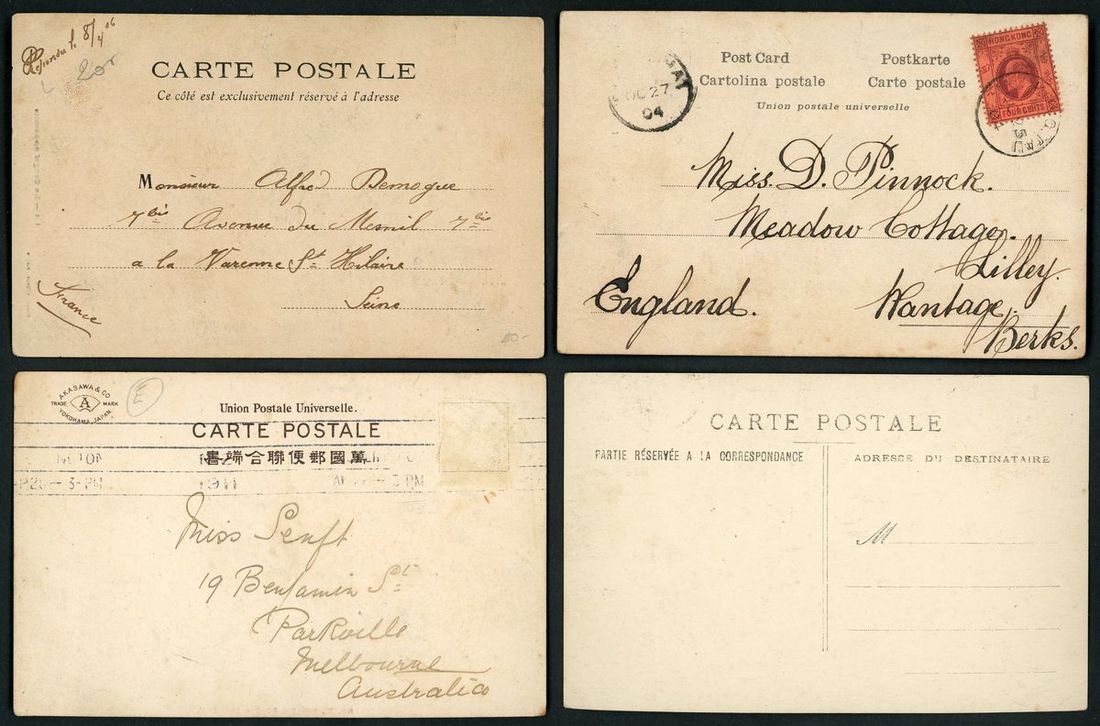 Répondu l. 8/4 06
CARTE POSTALE
Ce côté est exclusivement réservé à l'adresse
Monsieur Alfred Demogue
7bis Avenue du Mesnil 7bis
a la Varenne St Hilaire
Seine
France
Post Card Postkarte
Cartolina postale Carte postale
Union postale universelle
HONG KONG
FOUR CENTS
27
04
Miss. D. Pinnock.
Meadow Cottage.
Lilley.
England. Wantage.
Berks.
AKASAWA & CO
TRADE A MARK
YOKOHAMA, JAPAN.
E
Union Postale Universelle.
CARTE POSTALE
書端合聯便郵國萬
3-PM 1911 PM
Miss Senft
19 Benjamin St
Parkville
Melbourne
Australia
CARTE POSTALE
PARTIE RÉSERVÉE A LA CORRESPONDANCE
ADRESSE DU DESTINATAIRE
M